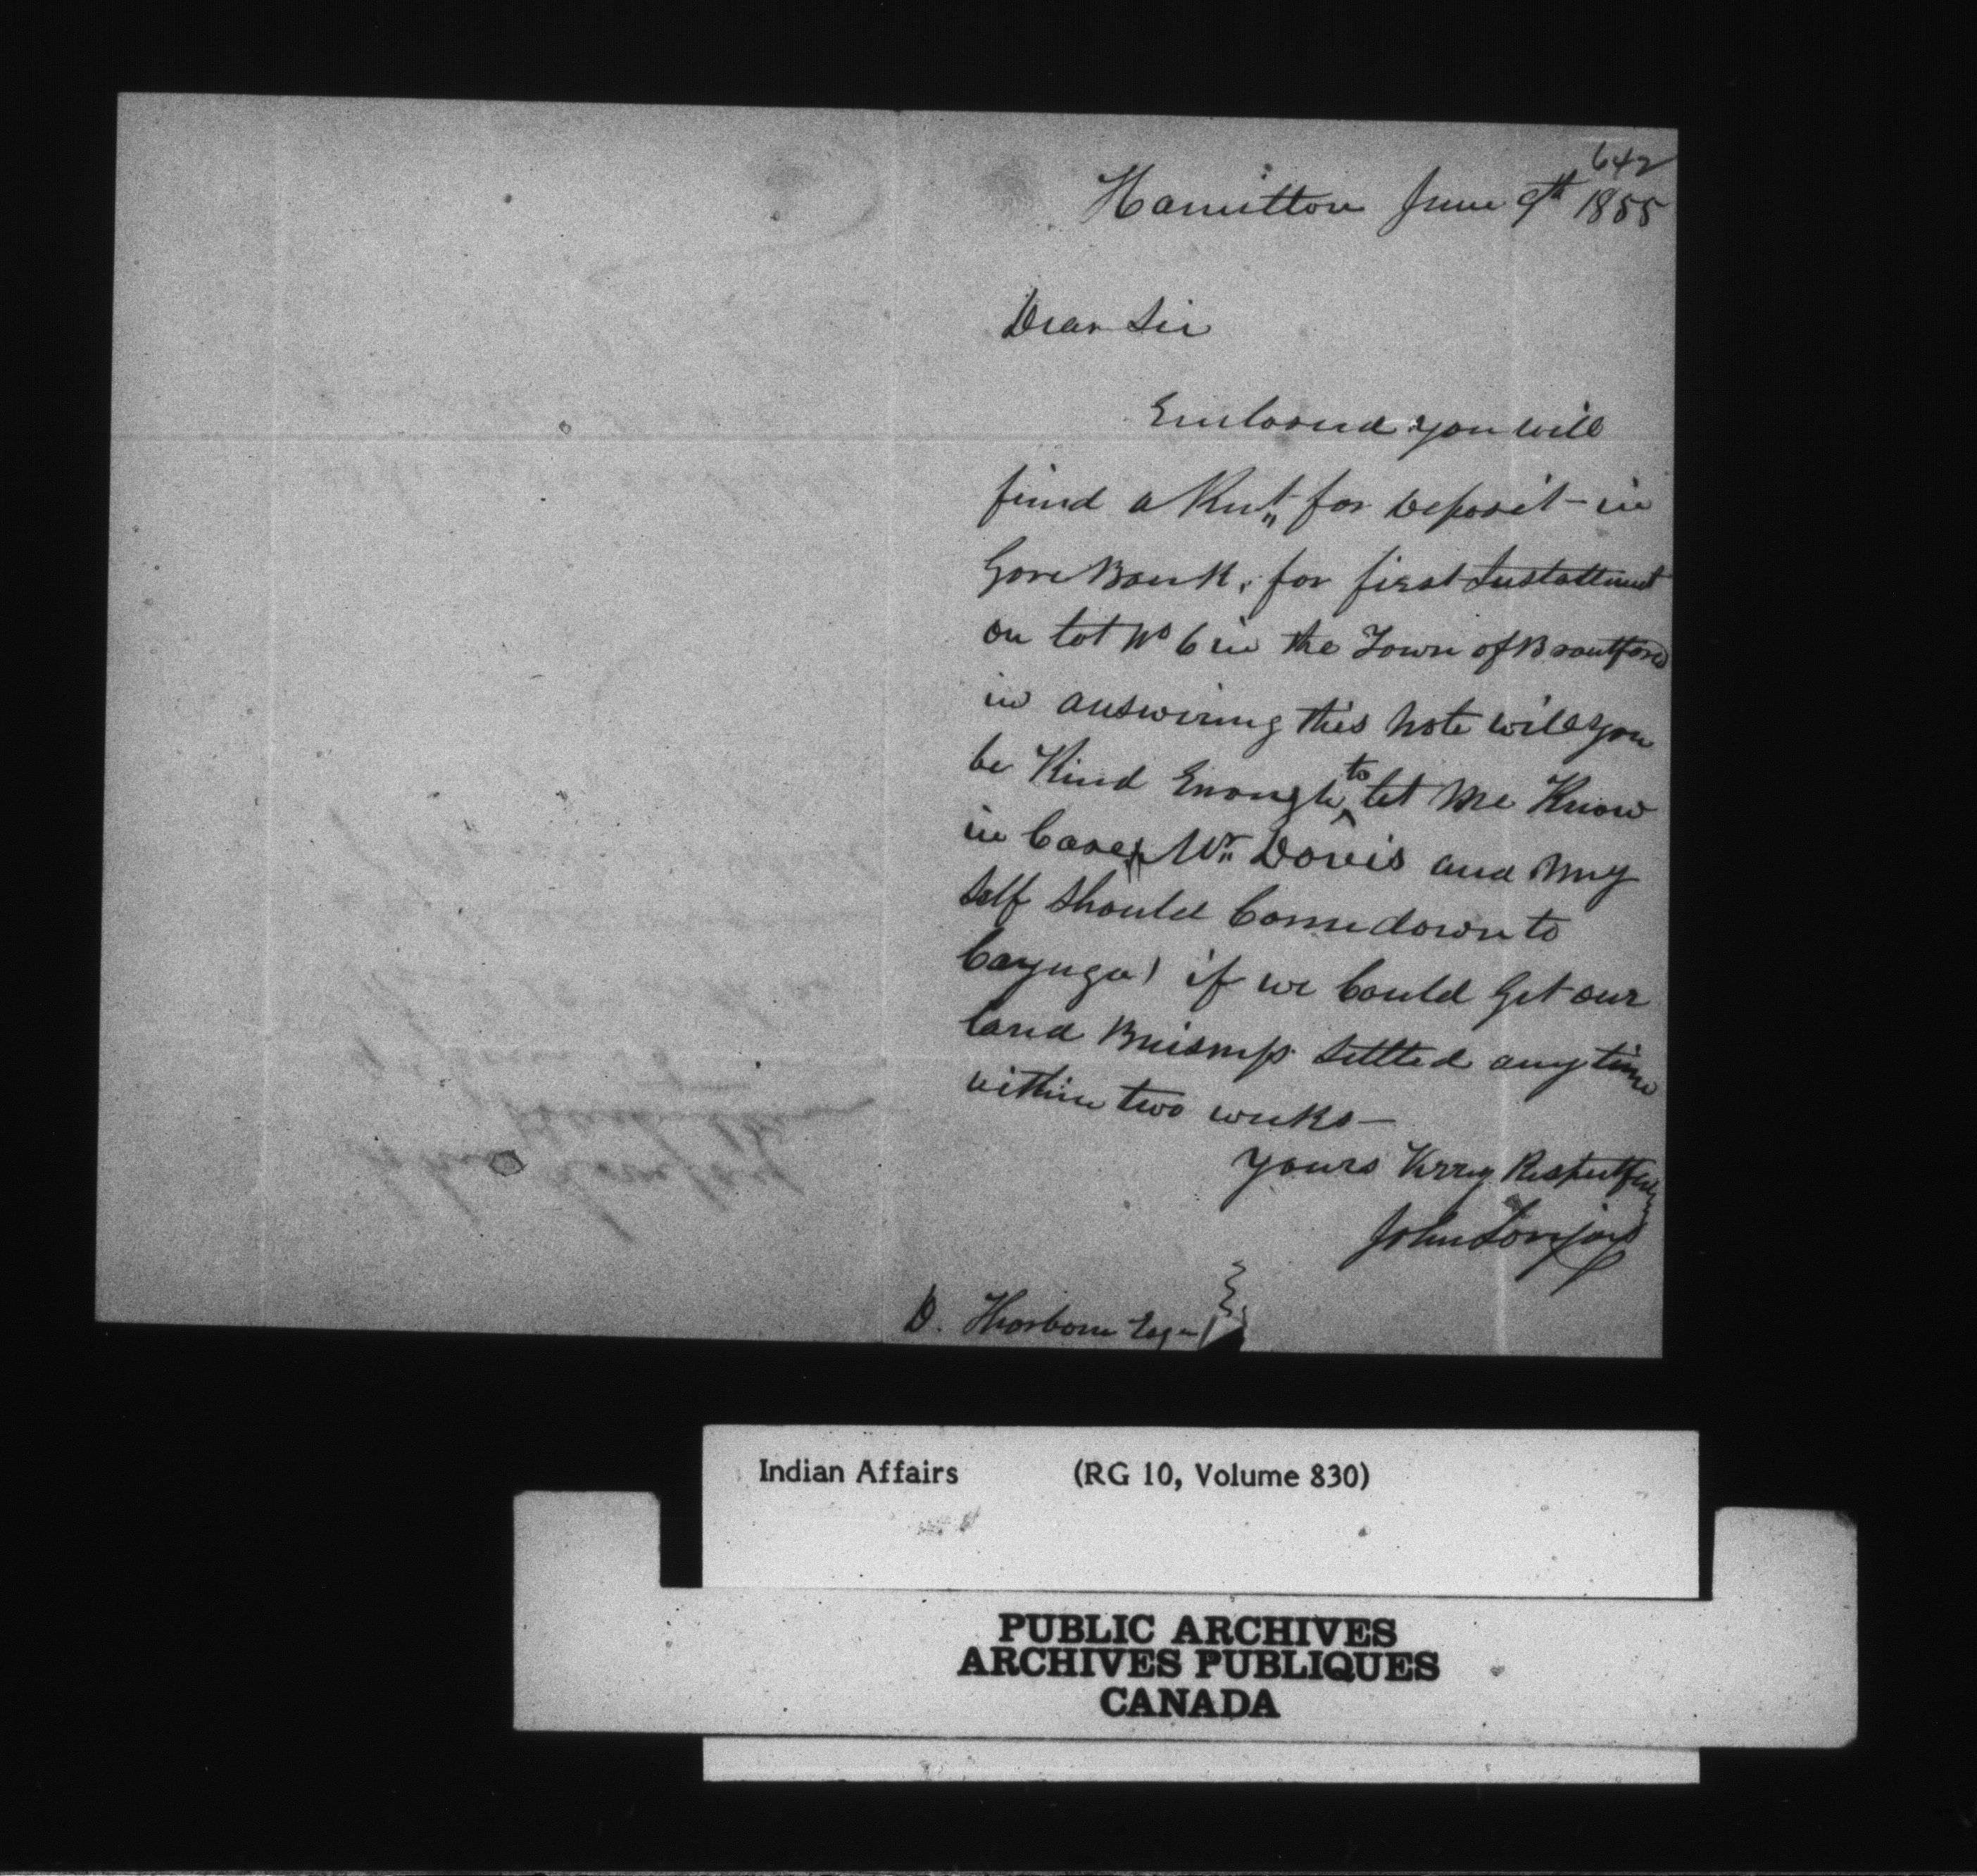 642
Hamilton June 9th 1855
Dear Sir
Enclosed you will
find a Rect for Deposit in
Gore Bank, for first Instalment
on lot No 6 in the Town of Brantford
in answering this note will you
be Kind Enough to let me Know
in Case Mr Davis and my
self should Come down to
Cayuga) if we Could Get our
land Buisness settled any time
within two weeks—
Yours Verry Respectfully
John
D. Thorborn Esqr
Indian Affairs (RG 10, Volume 830)
PUBLIC ARCHIVES
ARCHIVES PUBLIQUES
CANADA